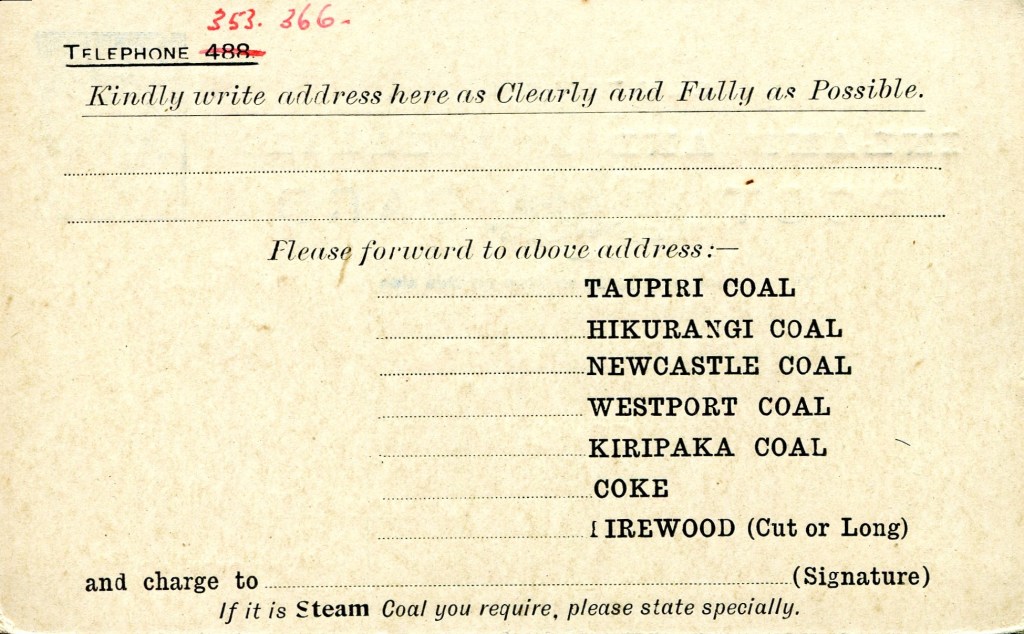 353. 366-
TELEPHONE 488
Kindly write address here as Clearly and Fully as Possible.
Please forward to above address:—
TAUPIRI COAL
HIKURANGI COAL
NEWCASTLE COAL
WESTPORT COAL
KIRIPAKA COAL
COKE
FIREWOOD (Cut or Long)
and charge to (Signature)
If it is Steam Coal you require, please state specially.